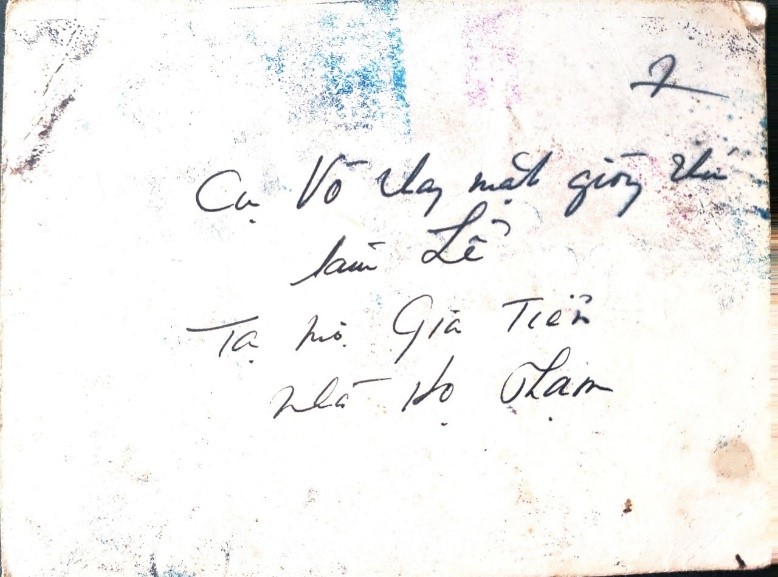 7
Cụ Võ thay mặt giòng thứ
làm Lễ
Tạ mộ Gia Tiên
nhà Họ Phạm